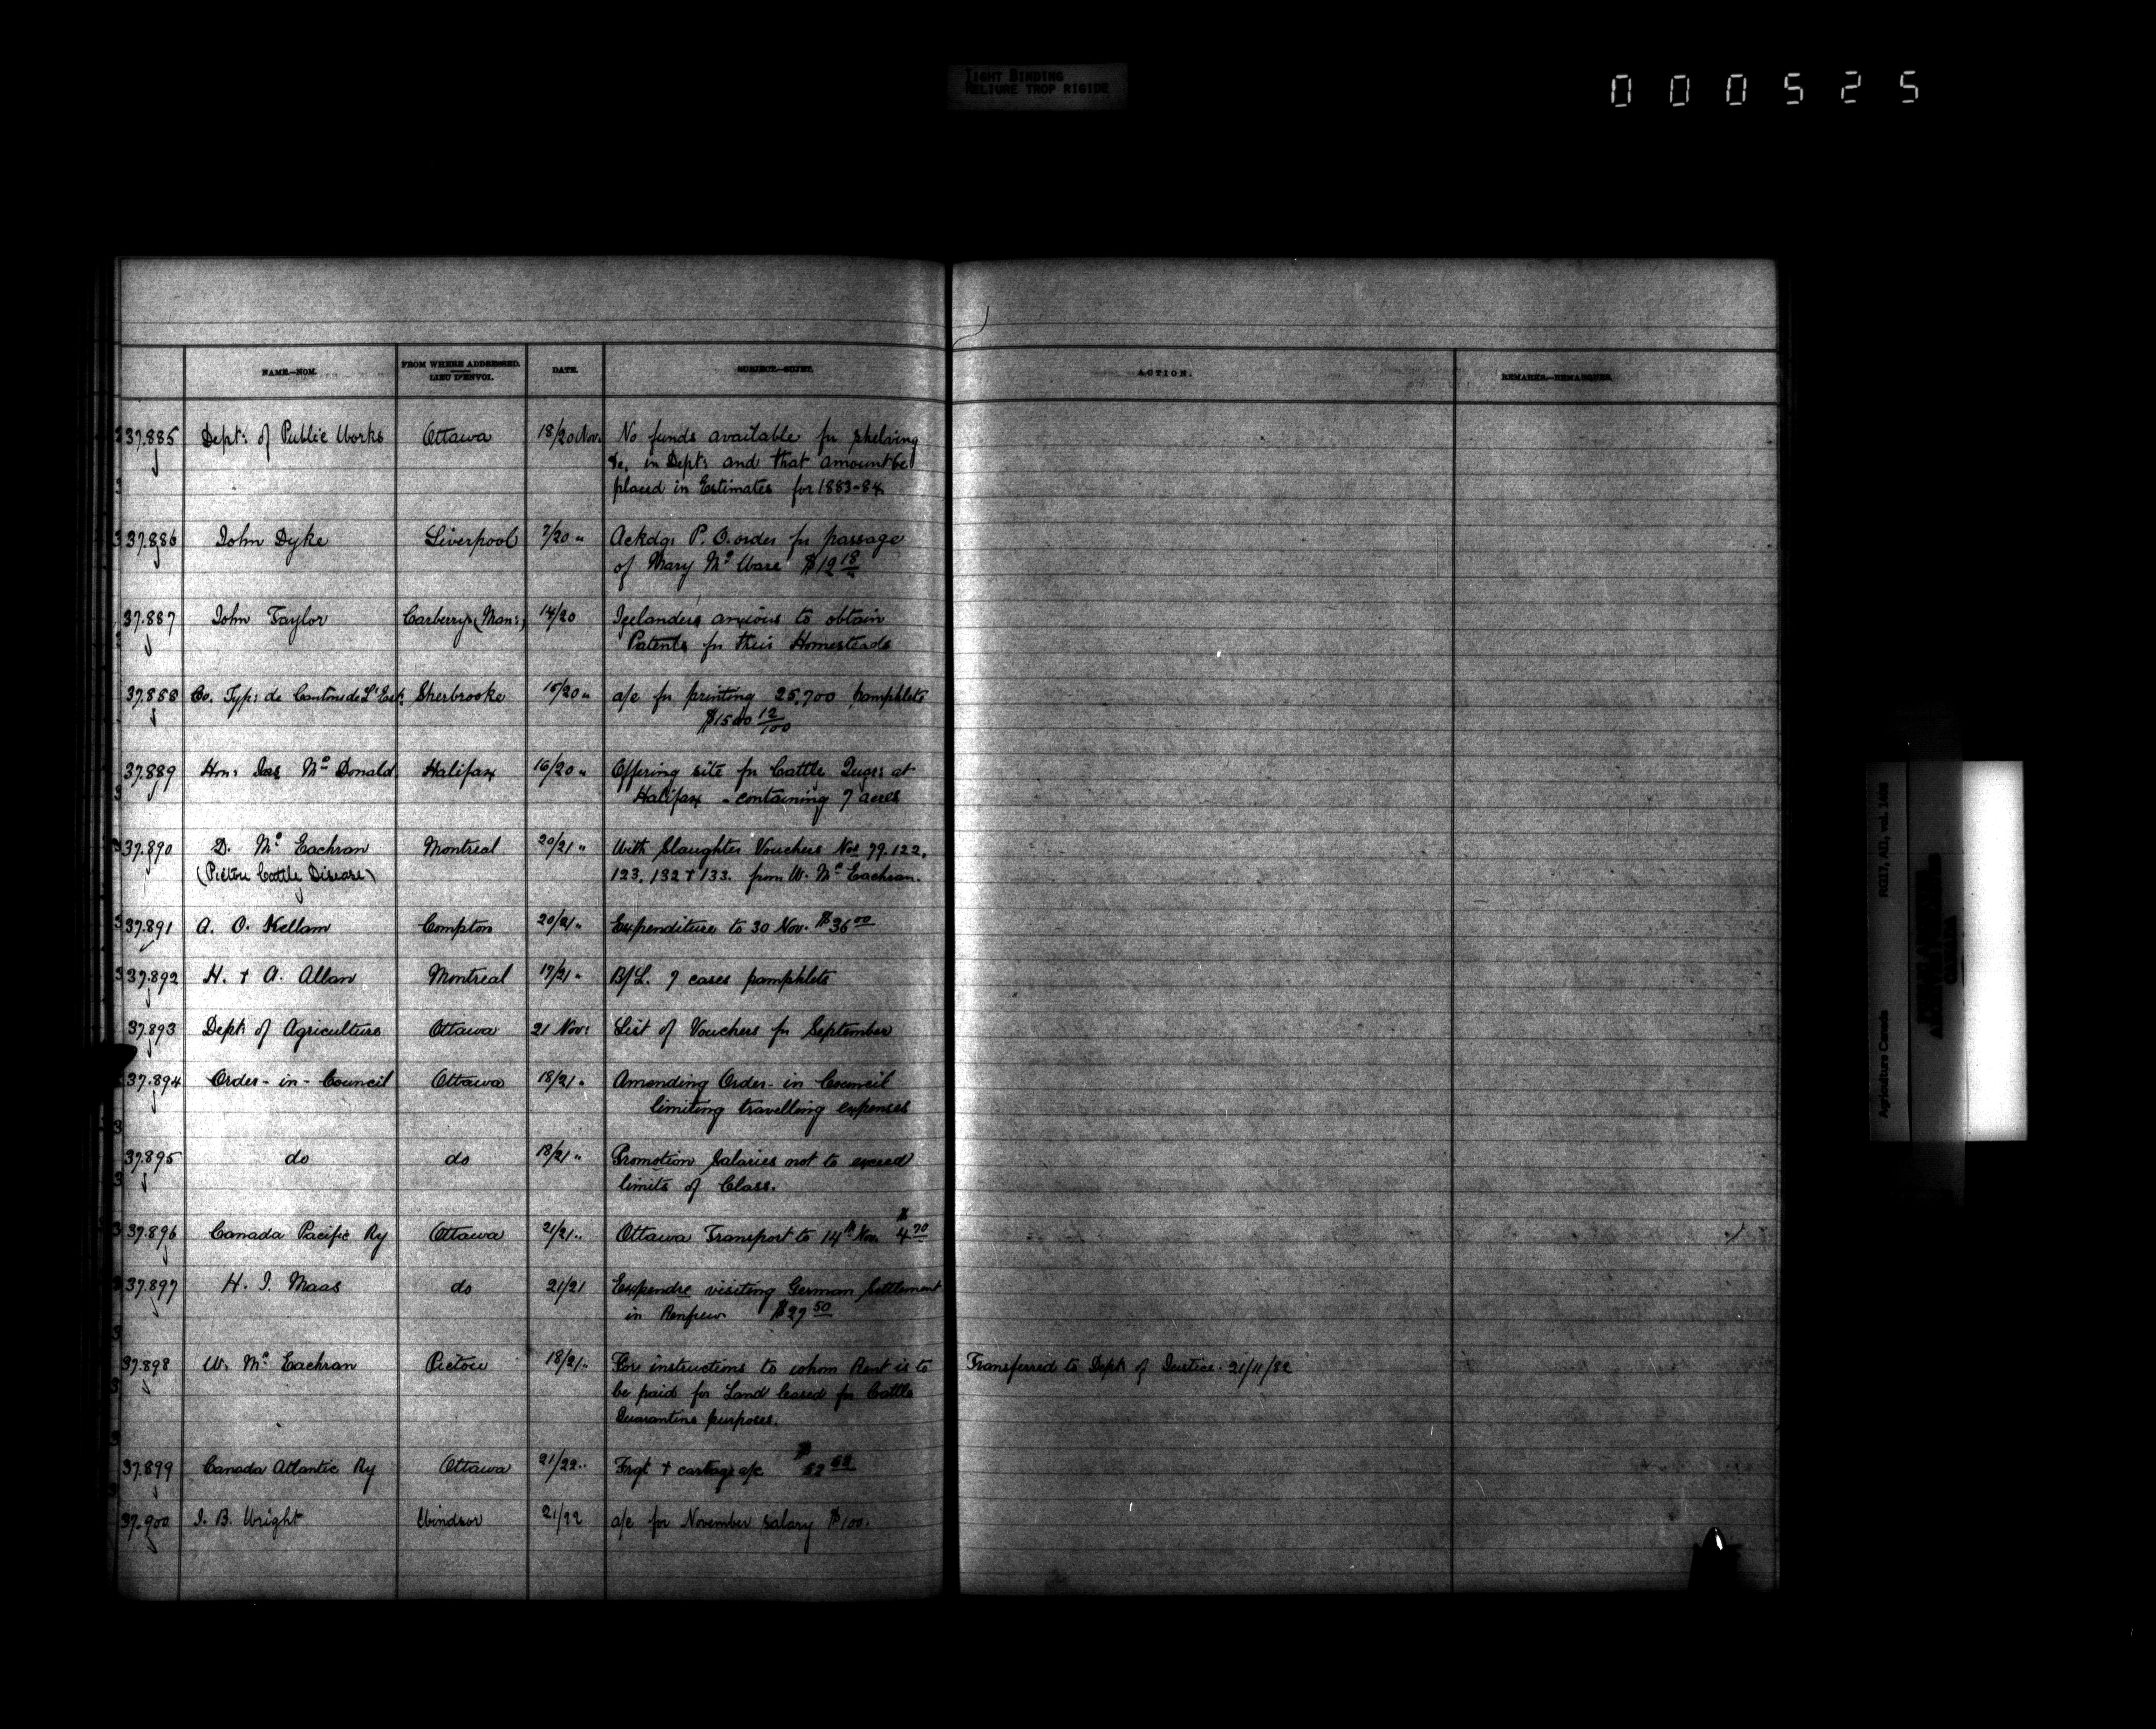 TIGHT BINDING
RELIURE TROP RIGIDE
000525
NAME.—NOM.
FROM WHERE ADDRESSED.
LIEU D'ENVOI.
DATE.
SUBJECT.—SUJET.
ACTION.
REMARKS.—REMARQUES.
37.885 Dept: of Public Works Ottawa 18/20 Nov. No funds available for shelving
&c. in Dept: and that amount be
placed in Estimates for 1883-84
37.886 John Dyke Liverpool 7/20 " Ackdg: P.O. order for passage
of Mary Mc Ware $12 18
37.887 John Taylor Carberry (Man:) 14/20 Icelanders anxious to obtain
Patents for their Homesteads
37.888 Co. Typ: de Cantons de L'Est. Sherbrooke 15/20 " a/c for printing 25,700 pamphlets
12/100
37.889 Hon: Jas Mc Donald Halifax 16/20 " Offering site for Cattle at
Halifax - containing 7 acres
37.890 D. Mc Eachran Montreal 20/21 " With Slaughter Vouchers Nos 99. 122.
(Pictou Cattle Disease) 123. 132 + 133. from W. Mc Eachran.
37.891 A. O. Kellam Compton 20/21 " Expenditure to 30 Nov. $36 00
37.892 H. + A. Allan Montreal 17/21 " B/L. 7 cases pamphlets
37.893 Dept: of Agriculture Ottawa 21 Nov: List of Vouchers for September
37.894 Order-in-Council Ottawa 18/21 " Amending Order-in Council
limiting travelling expenses
37.895 do do 18/21 " Promotion Salaries not to exceed
limits of Class.
37.896 Canada Pacific Ry Ottawa 21/21 " Ottawa Transport to 14th Nov. $4 70
37.897 H. I. Maas do 21/21 Expendre visiting German Settlement
in Renfrew $27 50
37.898 W. Mc Eachran Pictou 18/21 " For instructions to whom Rent is to Transferred to Dept: of Justice. 21/11/82
be paid for Land leased for Cattle
Quarantine purposes.
37.899 Canada Atlantic Ry Ottawa 21/22 " Frgt + cartage a/c $
37.900 J. B. Wright Windsor 21/22 a/c for November salary $100.
Agriculture Canada RG17, AII, vol. 1488